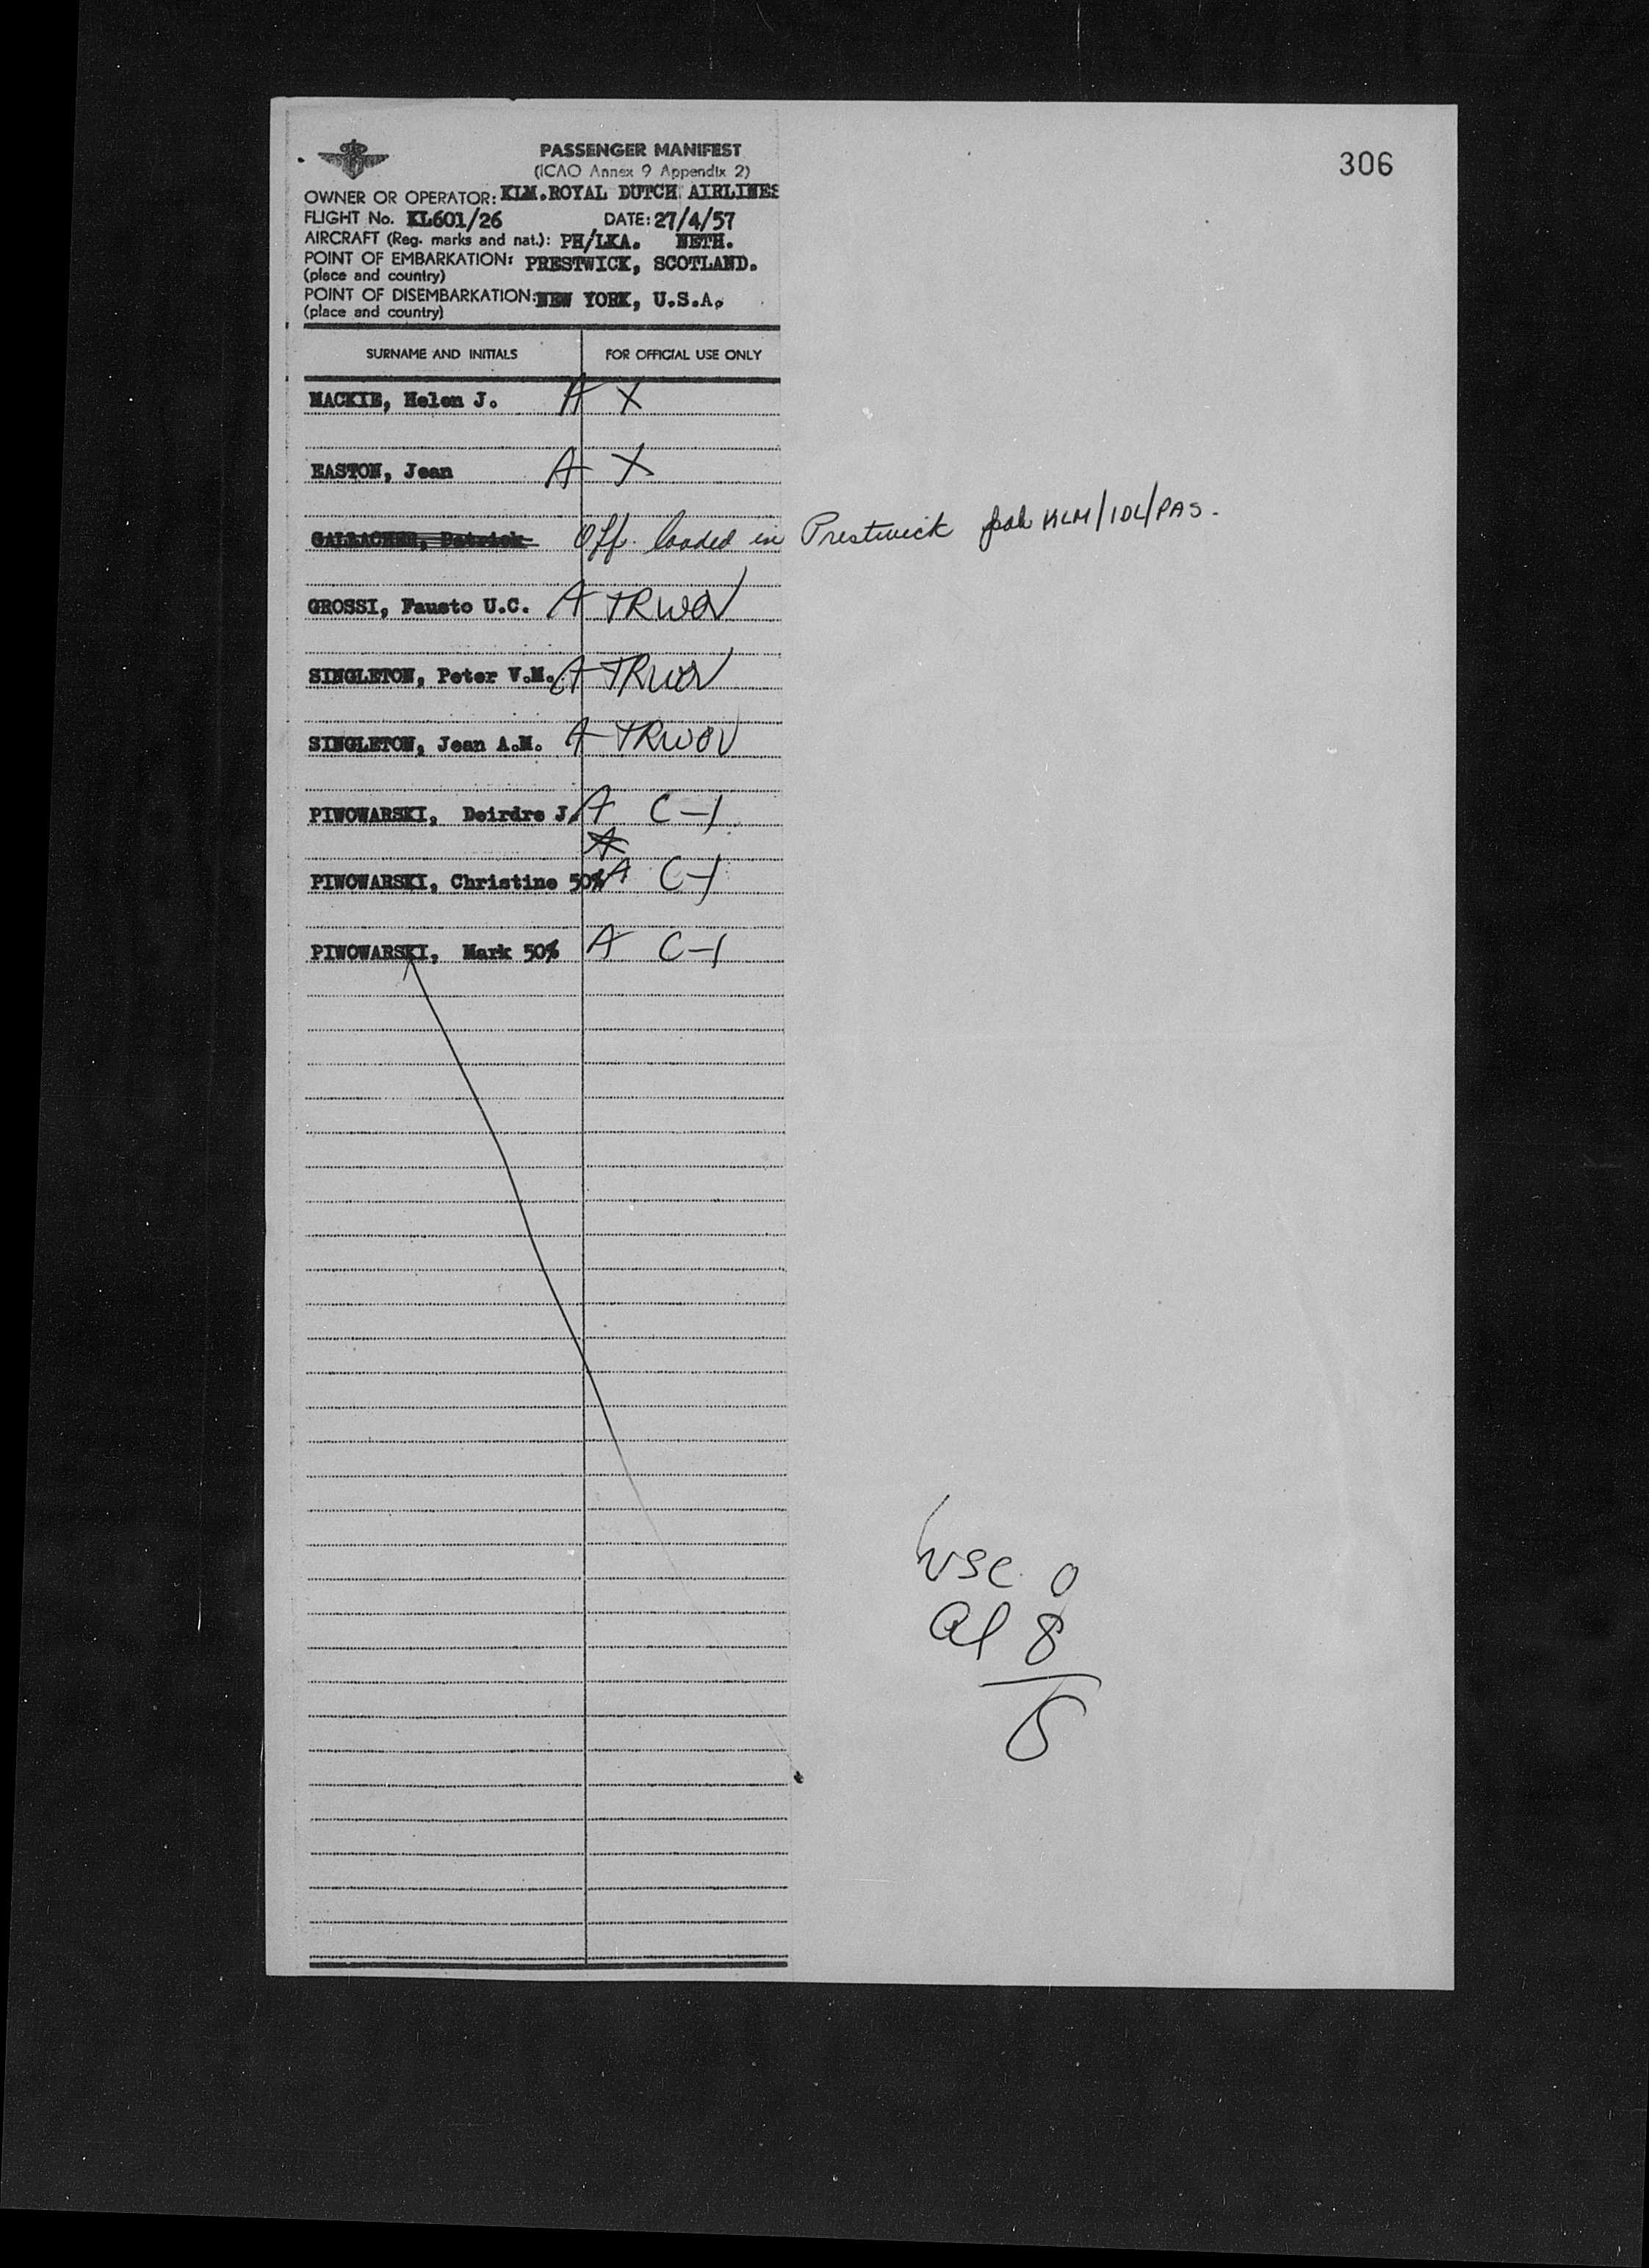 306
PASSENGER MANIFEST
(ICAO Annex 9 Appendix 2)
OWNER OR OPERATOR: KLM.ROYAL DUTCH AIRLINES
FLIGHT No. KL601/26 DATE: 27/4/57
AIRCRAFT (Reg. marks and nat.): PH/LKA. NETH.
POINT OF EMBARKATION: PRESTWICK, SCOTLAND.
(place and country)
POINT OF DISEMBARKATION: NEW YORK, U.S.A.
(place and country)
SURNAME AND INITIALS FOR OFFICIAL USE ONLY
MACKIE, Helen J. A X
EASTON, Jean A X
GALLACHER, Patrick Off. loaded in Prestwick KLM/IDL/PAS.
GROSSI, Fausto U.C. A TRWOV
SINGLETON, Peter V.M. A TRWOV
SINGLETON, Jean A.M. A TRWOV
PIWOWARSKI, Deirdre J. A C-1
A
PIWOWARSKI, Christine 50% A C-1
PIWOWARSKI, Mark 50% A C-1
USC 0
al 8
8